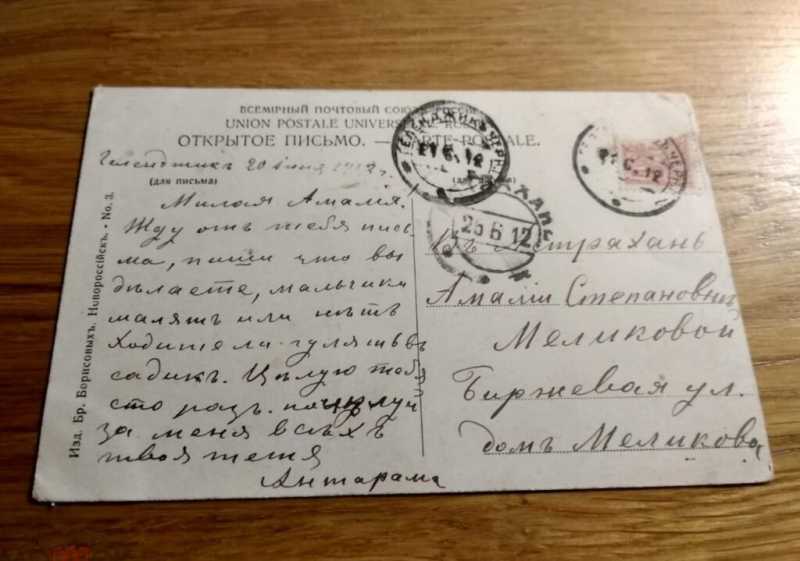 ВСЕМІРНЫЙ ПОЧТОВЫЙ СОЮЗЪ.
UNION POSTALE UNIVERSELLE.
ОТКРЫТОЕ ПИСЬМО. — CARTE POSTALE.
Геленджикъ 20 іюня 1912 г.
(для письма)
Милая Амалія.
Жду отъ тебя пись
ма, пиши что вы
дѣлаете, мальчики
шалятъ или нѣтъ
ходите ла гулять въ
садикъ. Цѣлую тебя
сто разъ. поцѣлуй
за меня всѣхъ
твоя тетя
Антарама
Изд. Бр. Борисовыхъ, Новороссійскъ. • No. 3.
ГЕЛЕНДЖИКЪ ЧЕРН
21 6 12
25 6 12
21 6 12
Въ Астрахань
Амаліи Степановнѣ
Меликовой
Биржевая ул.
домъ Меликова